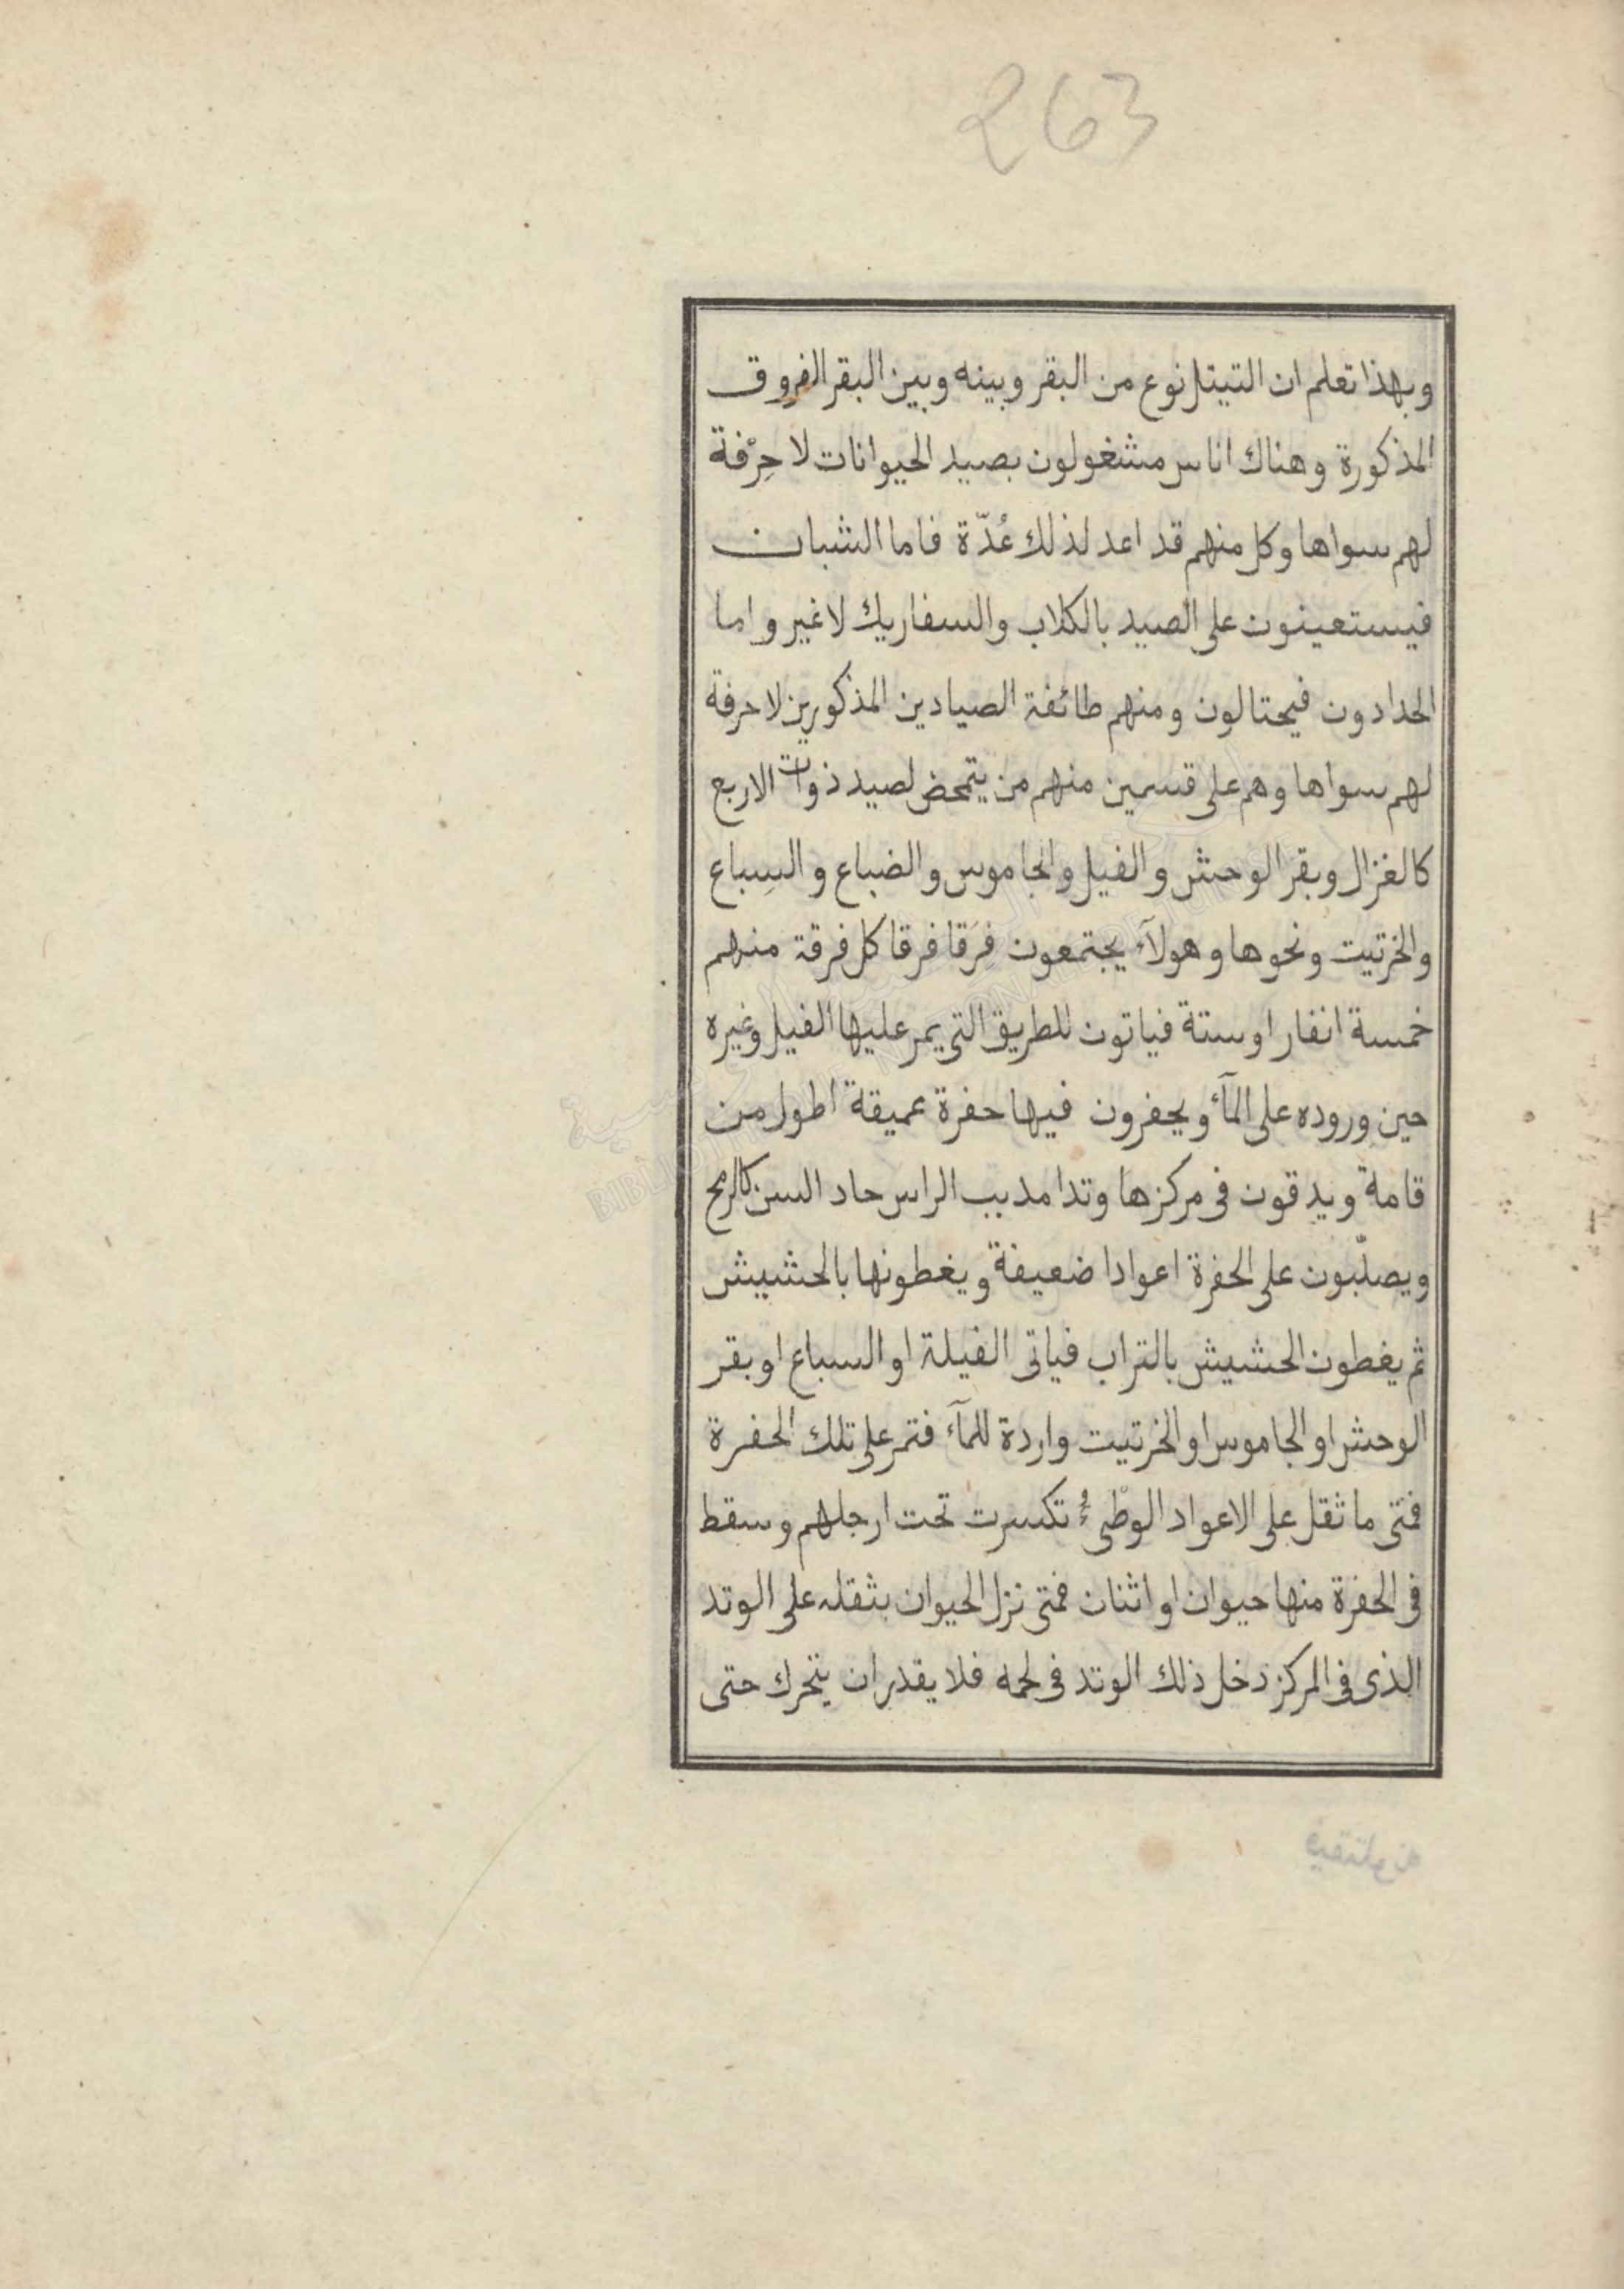 263
وبهذا تعلم ان التيتل نوع من البقر وبينه وبين البقر الفروق
المذكورة وهناك اناس مشغولون بصيد الحيوانات لا حِرْفة
لهم سواها وكل منهم قد اعد لذلك عُدّة فاما الشبان
فيستعينون على الصيد بالكلاب والسفاريك لا غير واما
الحدادون فيحتالون ومنهم طائفة الصيادين المذكورين لا حرفة
لهم سواها وهم على قسمين منهم من يتمحض لصيد ذوات الاربع
كالغزال وبقر الوحش والفيل والجاموس والضباع والسِباع
والخرتيت ونحوها وهولآء يجتمعون فِرَقا فرقا كل فرقة منهم
خمسة انفار او ستة فياتون للطريق التى يمر عليها الفيل وغيره
حين وروده على المآء ويحفرون فيها حفرة عميقة اطول من
قامة ويدقون فى مركزها وتدا مدبب الراس حاد السن كالرمح
ويصلّبون على الحفرة اعوادا ضعيفة ويغطونها بالحشيش
ثم يغطون الحشيش بالتراب فياتى الفيلة او السباع او بقر
الوحش او الجاموس او الخرتيت واردة للمآء فتمر على تلك الحفرة
فمتى ما ثقل على الاعواد الوطْىُٔ تكسرت تحت ارجلهم وسقط
فى الحفرة منها حيوان او اثنان فمتى نزل الحيوان بثقله على الوتد
الذى فى المركز دخل ذلك الوتد فى لحمه فلا يقدر ان يتحرك حتى